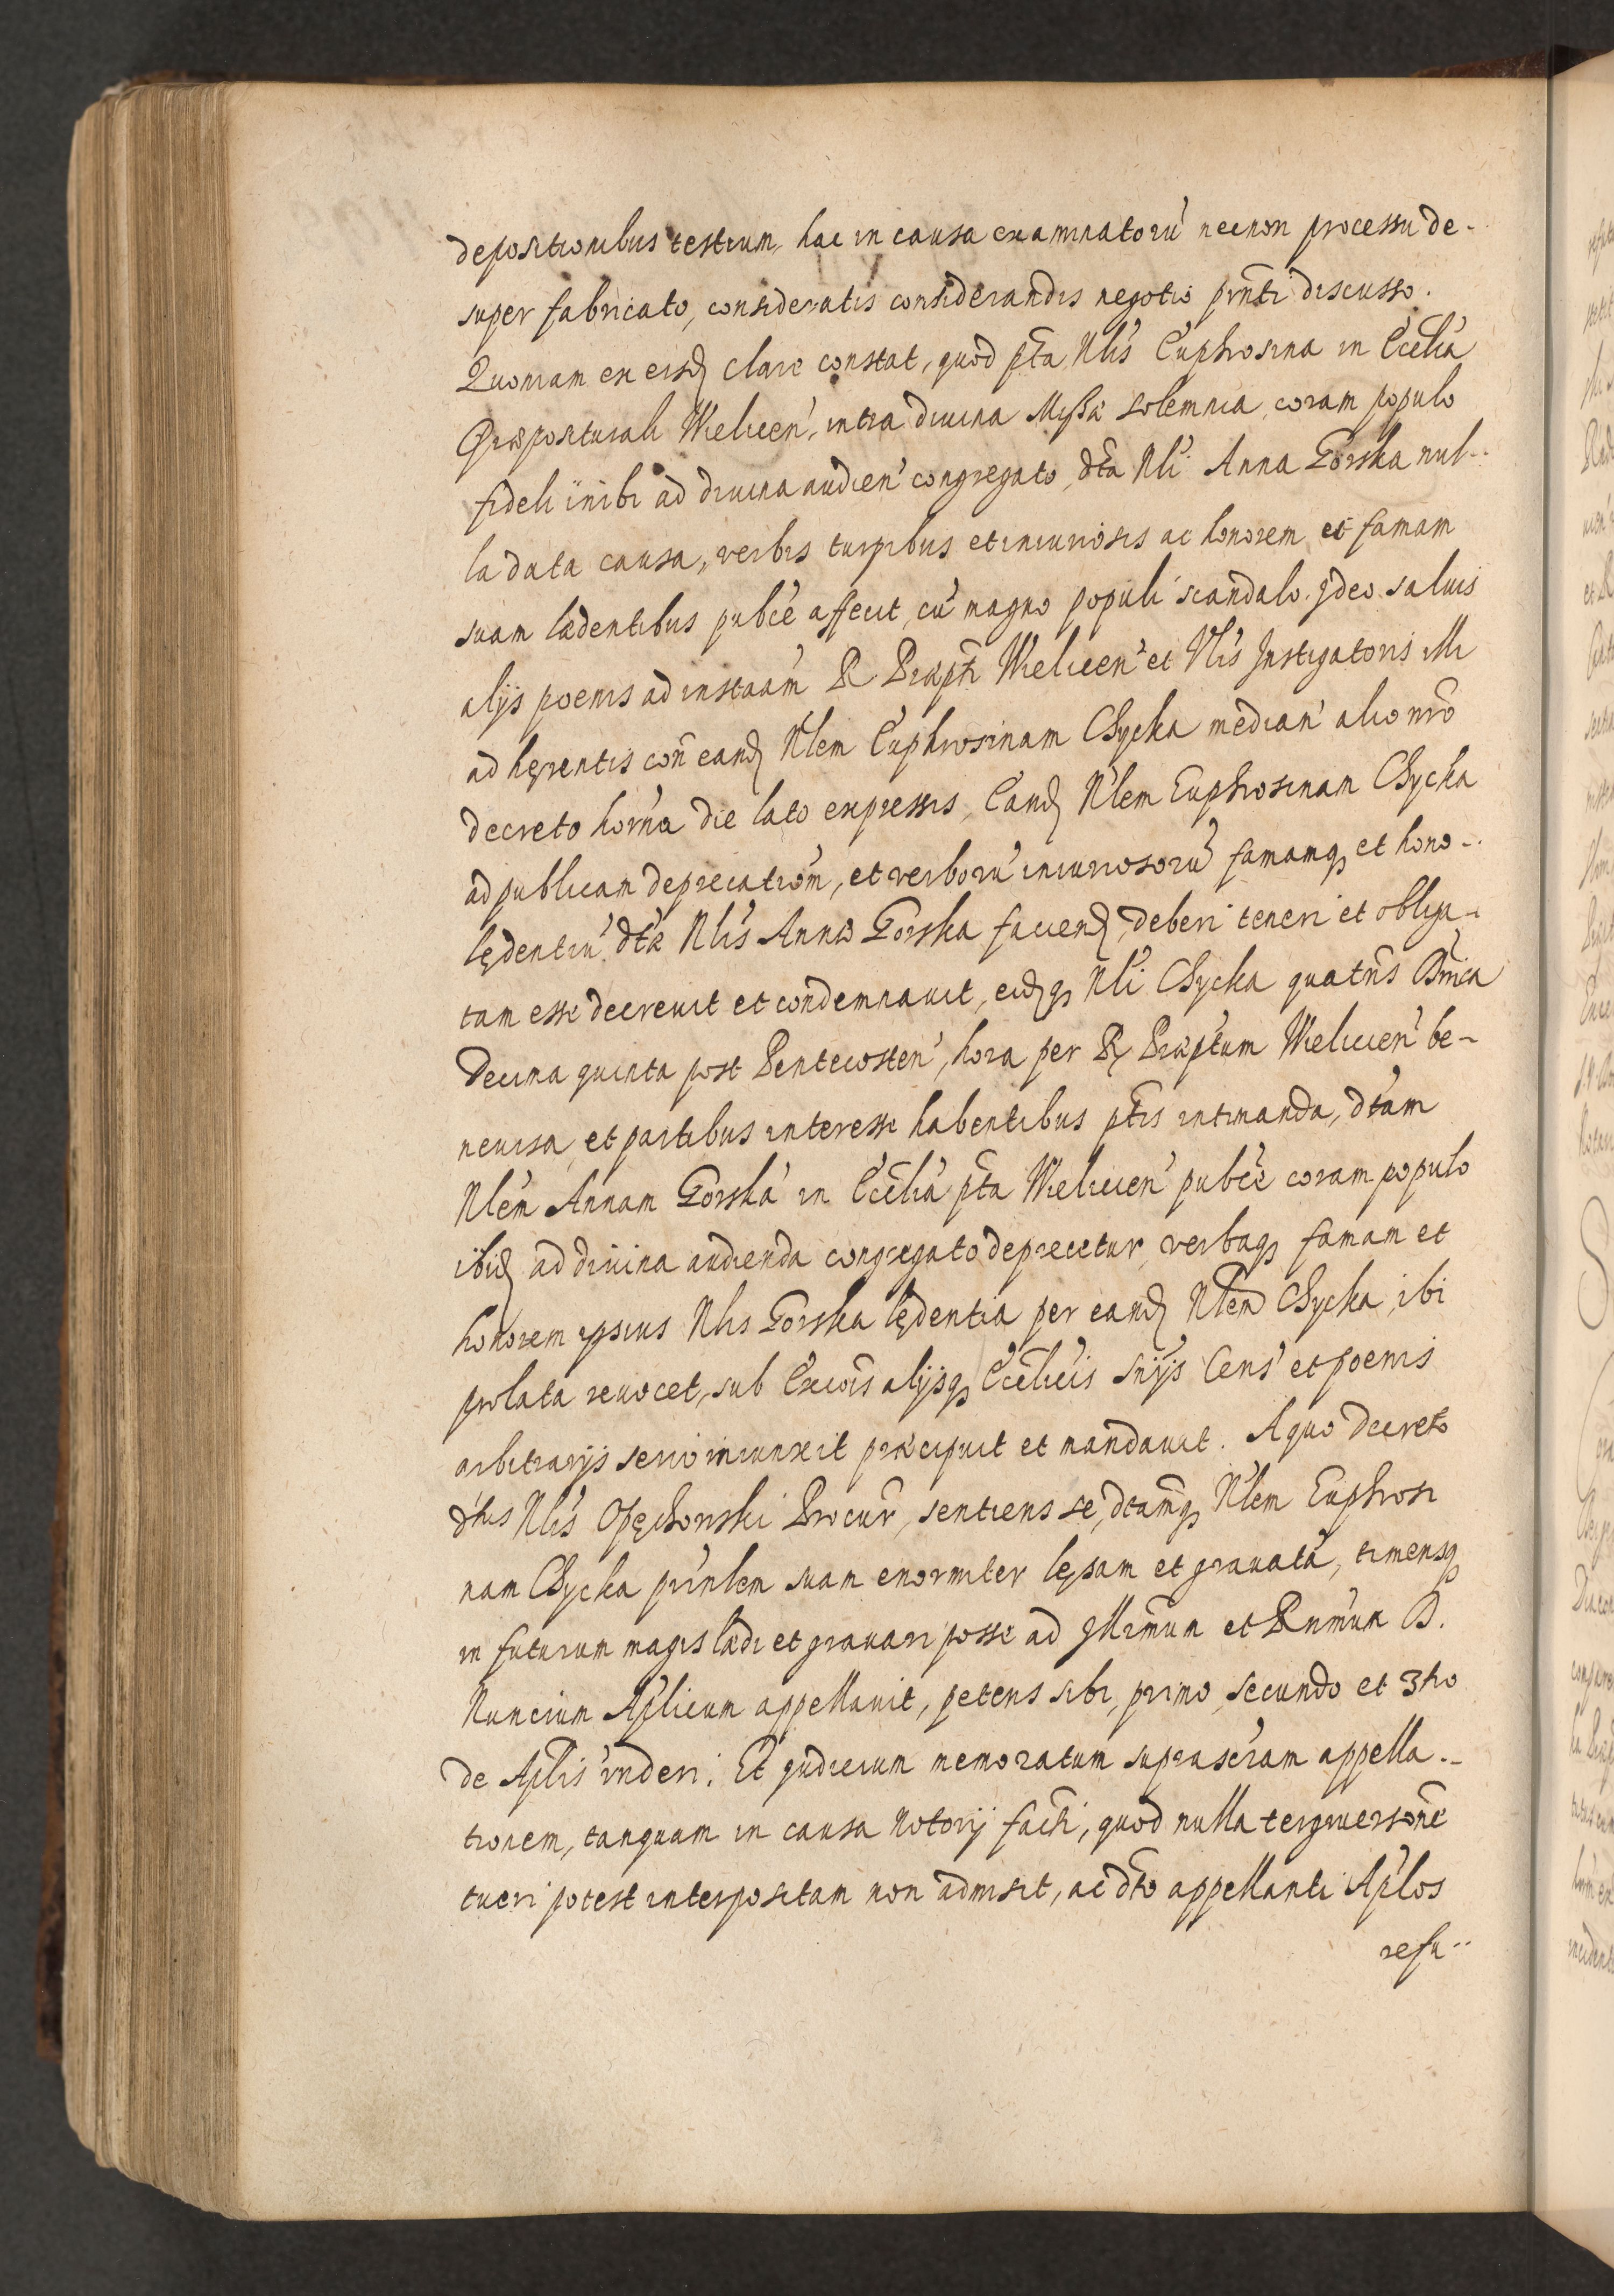 depositionibus testium, hac in causa examinatorũ necnon processu de-
super fabricato, consideratis considerandis negotio pñti discusso.
Quoniam ex eisđ clare constat, quod pta Nlis Euphrosina in Ecclia
Præpositurali Wielicen, intra divina Missæ solemnia, coram populo
fideli inibi ad divina audien congregato, dta Nli Anna Gorska nul-
la data causa, verbis turpibus et iniuriosis ac honorem et famam
suam lædentibus publce affecit, cũ magno populi scandalo. Ideo saluis
alijs poenis ad instaam R Præpti Wielicen et Nlis Instigatoris illi
adhęrentis con eanđ Nlem Euphrosinam Chycka median alio nro
decreto horna die lato expressis, Eanđ Nlem Euphrosinam Chycka
ad publicam deprecationm, et verborũ iniuriosorũ famamq et hono-
lędentiũ dtæ Nlis Annæ Gorska faciendđ, deberi teneri et obliga-
tam esse decrevit et condemnavit, eiđq Nli Chycka quatns Dnica
Decima quinta post Pentecosten, hora per R Præptum Wielicien be-
nevisa, et partibus interesse habentibus ptis intimanda, dtam
Nlem Annam Gorską in Ecclia pta Wielicien publce coram populo
ibiđ ad divina audienda congregato deprecetur, verbaq famam et
honorem ipsius Nlis Gorska lędentia per eanđ Nlem Chycka, ibi
prolata revocet, sub Excois alijsq Ecclicis sñijs Cens et poenis
arbitrarijs serio iniunxit præcipuit et mandavit. A quo decreto
dtus Nlis Opęchowski Procur, sentiens se, dtamq Nlem Euphrosi
nam Chycka prinlem suam enormiter lęsam et gravatã, timensq
in futurum magis lædi et gravari posse ad Illrmum et Rnmum D.
Nuncium Aplicum appellavit, petens sibi, primo, secundo et 3tio
de Aplis videri. Et Iudicium memoratum suprascram appella-
tionem, tanquam in causa Notorij facti, quod nulla tergiversone
tueri potest interpositam non admisit, ac dto appellanti Aplos
refu-